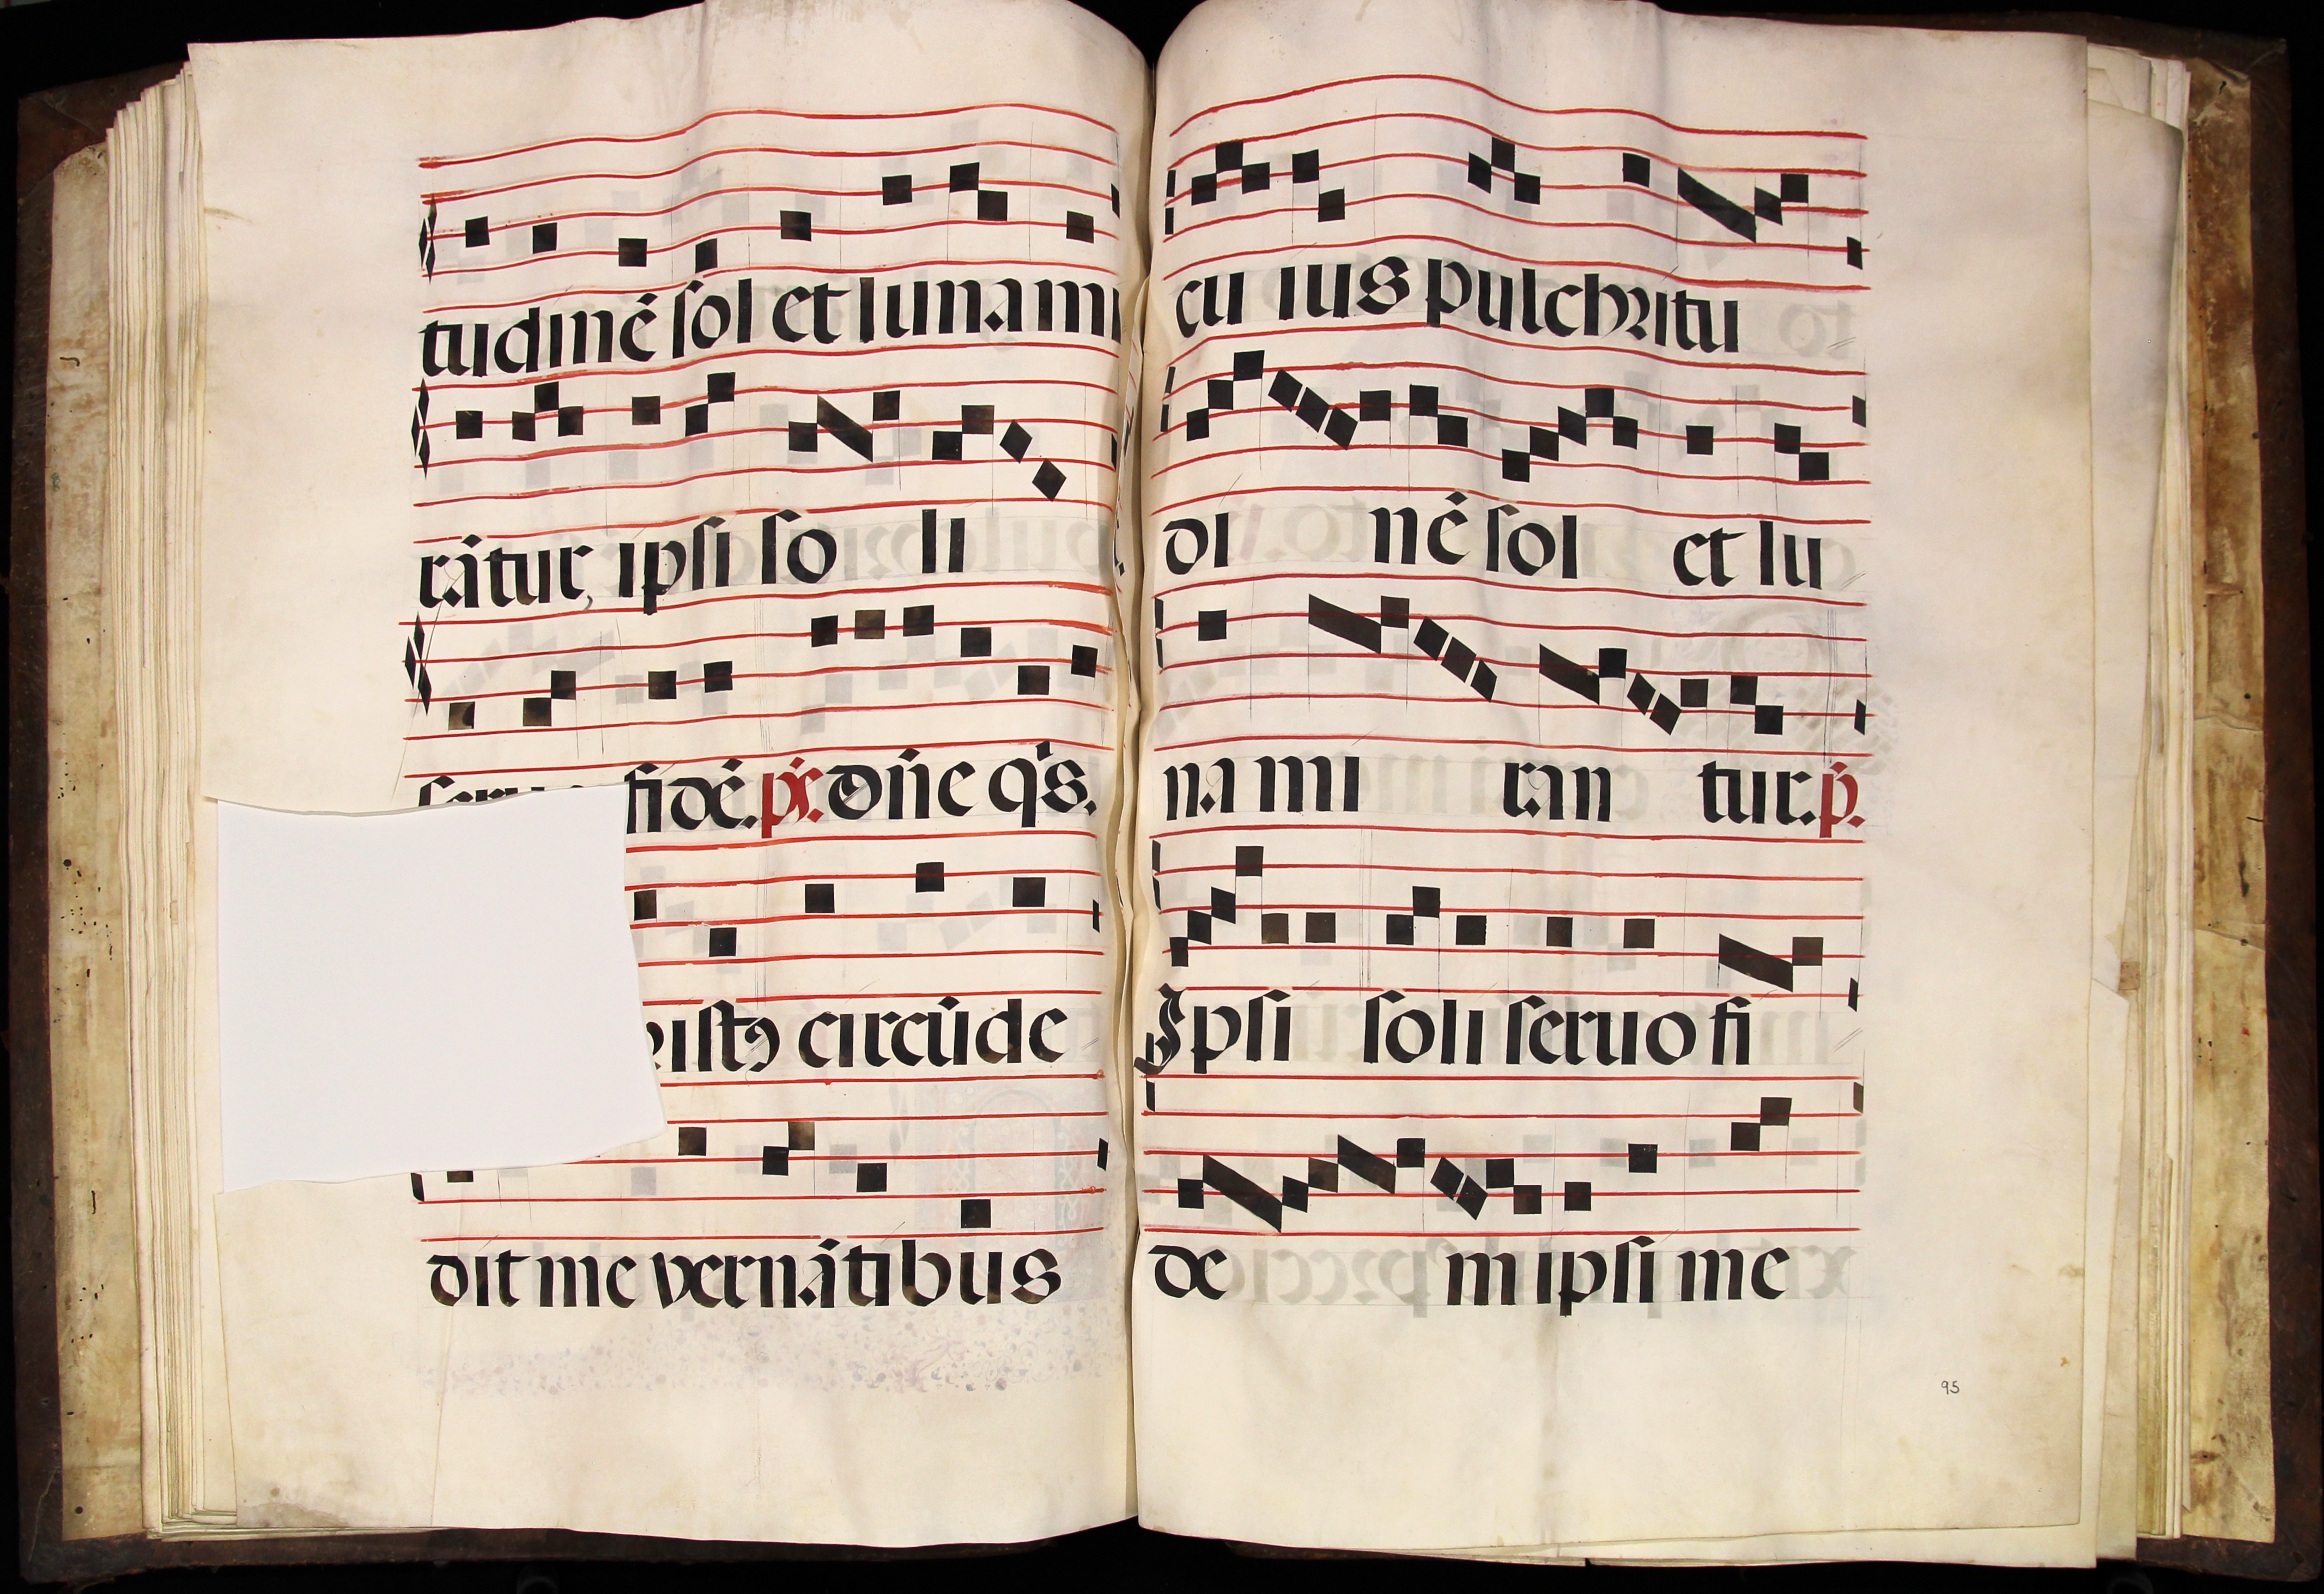 tudinē sol et luna mi
rātur, ipsi so li
fidē. ps. dn̄e q's.
istꝯ circūde
dit me vernātibus
cu ius pulchritu
di nē sol et lu
na mi ran tur. p̄.
Ipsi soli seruo fi
de m ipsi me
95